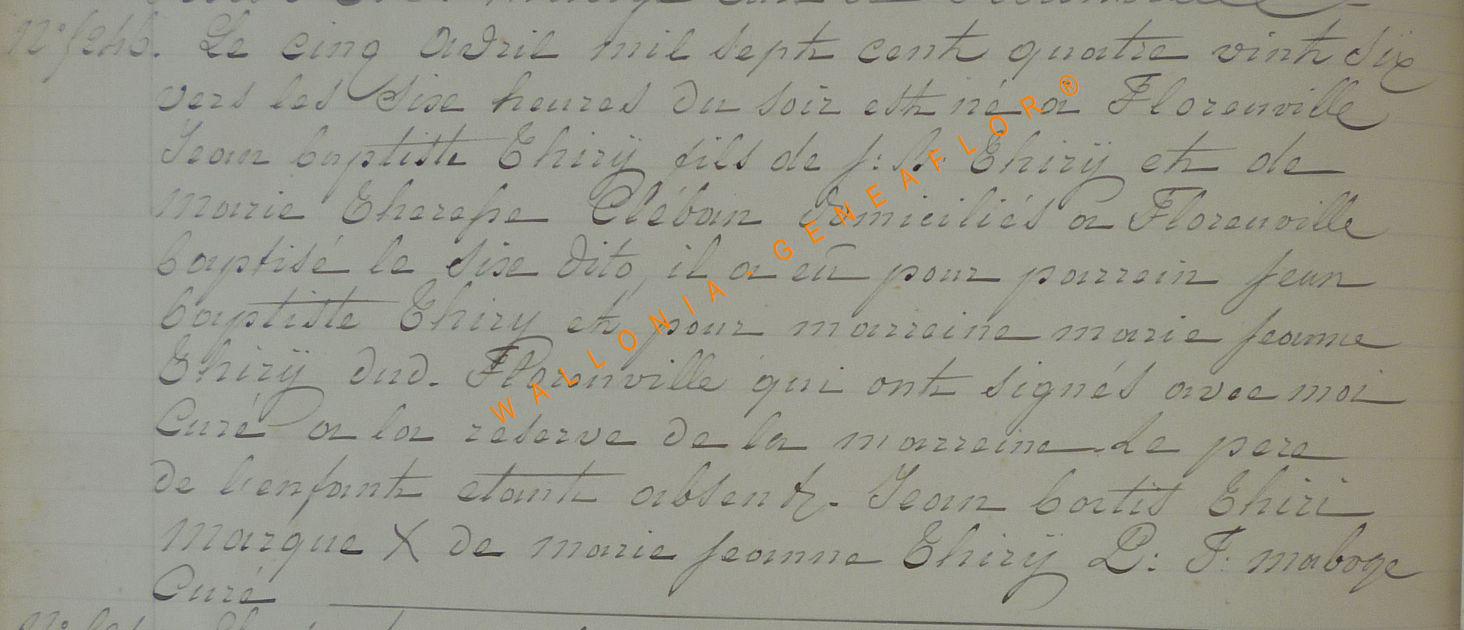 Le cinq avril mil sept cent quatre vint six
vers les sixe heures du soir est né a Florenville
Jean baptiste Thirÿ fils de j: b: Thirÿ et de
marie Therese Cléban domiciliés a Florenville
baptisé le sixe dito, il a eu pour parrein jean
baptiste Thiry et pour marreine marie jeanne
Thirÿ dud. Florenville qui ont signés avec moi
Curé a la reserve de la marreine Le pere
de l'enfant etant absent. Jean batis Thiri
marque X de marie jeanne Thirÿ P: F: maboge
Curé
WALLONIA - GENEAFLOR®